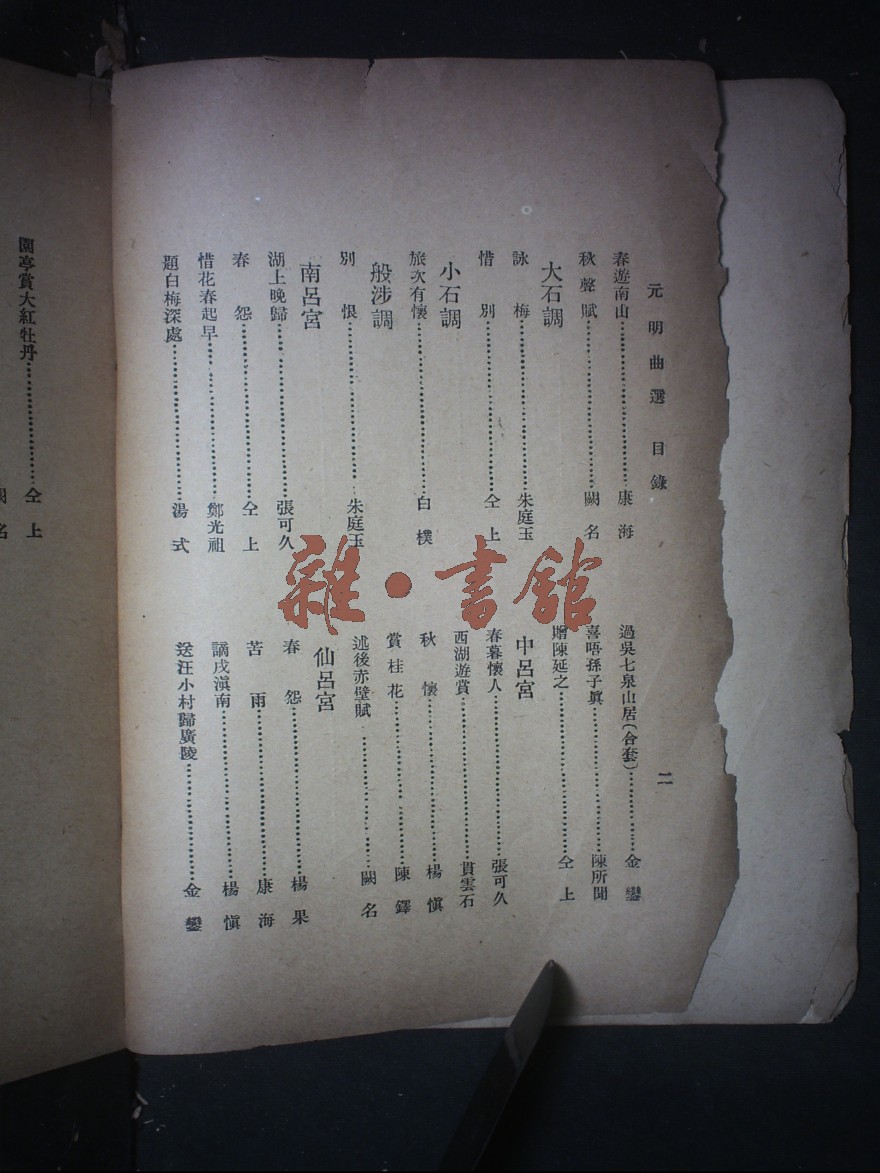 元明曲選 目錄
二
春遊南山……康海
秋聲賦……闕名
大石調
詠梅……朱庭玉
惜別……仝上
小石調
旅次有懷……白樸
般涉調
別恨……朱庭玉
南呂宮
湖上晚歸……張可久
春怨……仝上
惜花春起早……鄭光祖
題白梅深處……湯式
過吳七泉山居(合套)……金鑾
喜唔孫子眞……陳所聞
贈陳延之……仝上
中呂宮
春暮懷人……張可久
西湖遊賞……貫雲石
秋懷……楊愼
賞桂花……陳鐸
述後赤壁賦……闕名
仙呂宮
春怨……楊果
苦雨……康海
謫戍滇南……楊愼
送汪小村歸廣陵……金鑾
園亭賞大紅牡丹……仝上
名
雜·書館